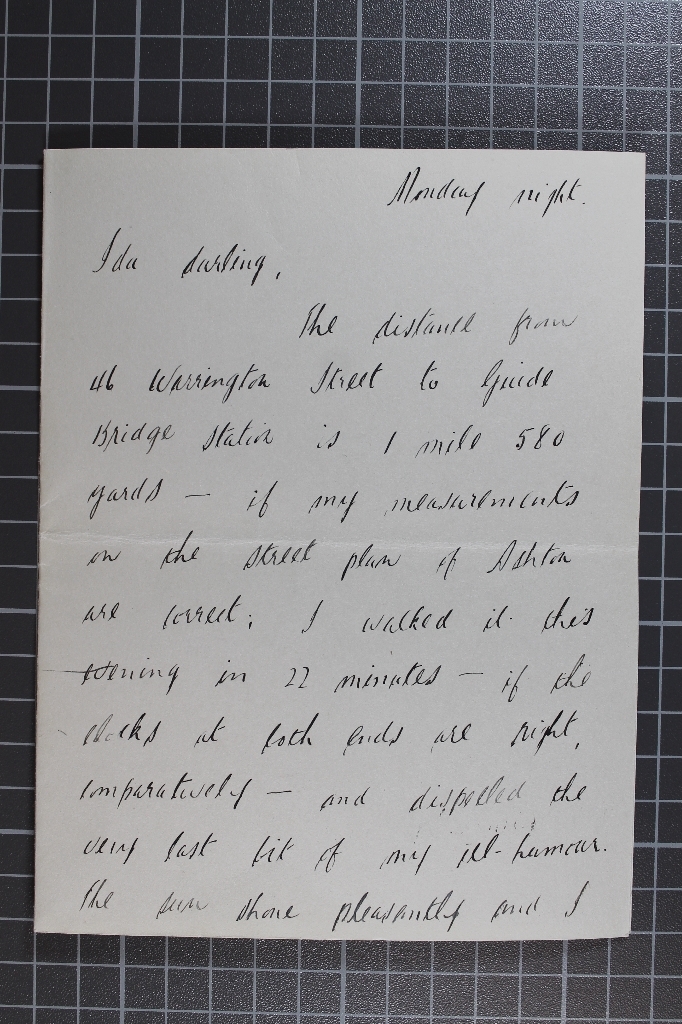 Monday night.
Ida darling,
The distance from
46 Warrington Street to Guide
Bridge Station is 1 mile 580
yards — if my measurements
on the street plan of Ashton
are correct; I walked it this
evening in 22 minutes — if the
clocks at both ends are right,
comparatively — and dispelled the
very last bit of my ill-humour.
The sun shone pleasantly and I